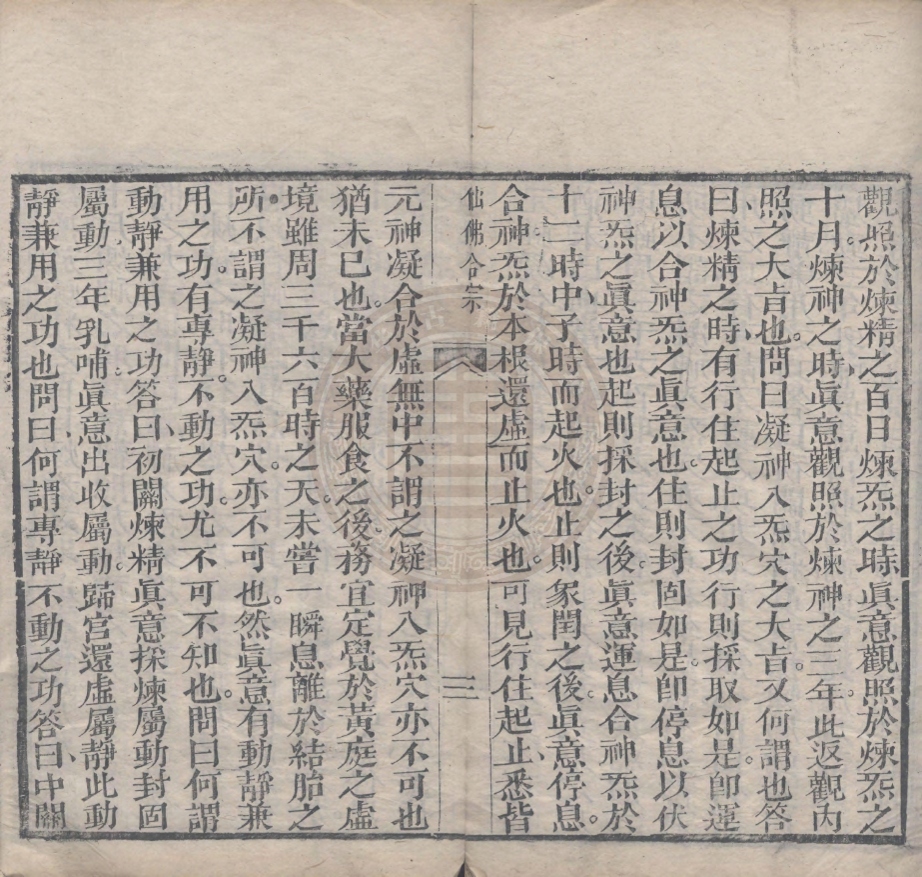 觀照於煉精之百日煉炁之時眞意觀照於煉炁之
十月煉神之時眞意觀照於煉神之三年此返觀內
照之大㫖也問曰凝神入炁穴之大㫖又何謂也答
曰煉精之時有行住起止之功行則採取如是卽運
息以合神炁之眞意也住則封固如是卽停息以伏
神炁之眞意也起則採封之後眞意運息合神炁於
十二時中子時而起火也止則象閏之後眞意停息
合神炁於本根還虛而止火也可見行住起止悉皆
仙佛合宗
三
元神凝合於虛無中不謂之凝神入炁穴亦不可也
猶未已也當大藥服食之後務宜定覺於黃庭之虛
境雖周三千六百時之天未嘗一瞬息離於結胎之
所不謂之凝神入炁穴亦不可也然眞意有動靜兼
用之功有專靜不動之功尤不可不知也問曰何謂
動靜兼用之功答曰初關煉精眞意採煉屬動封固
屬動三年乳哺眞意出收屬動歸宮還虛屬靜此動
靜兼用之功也問曰何謂專靜不動之功答曰中關